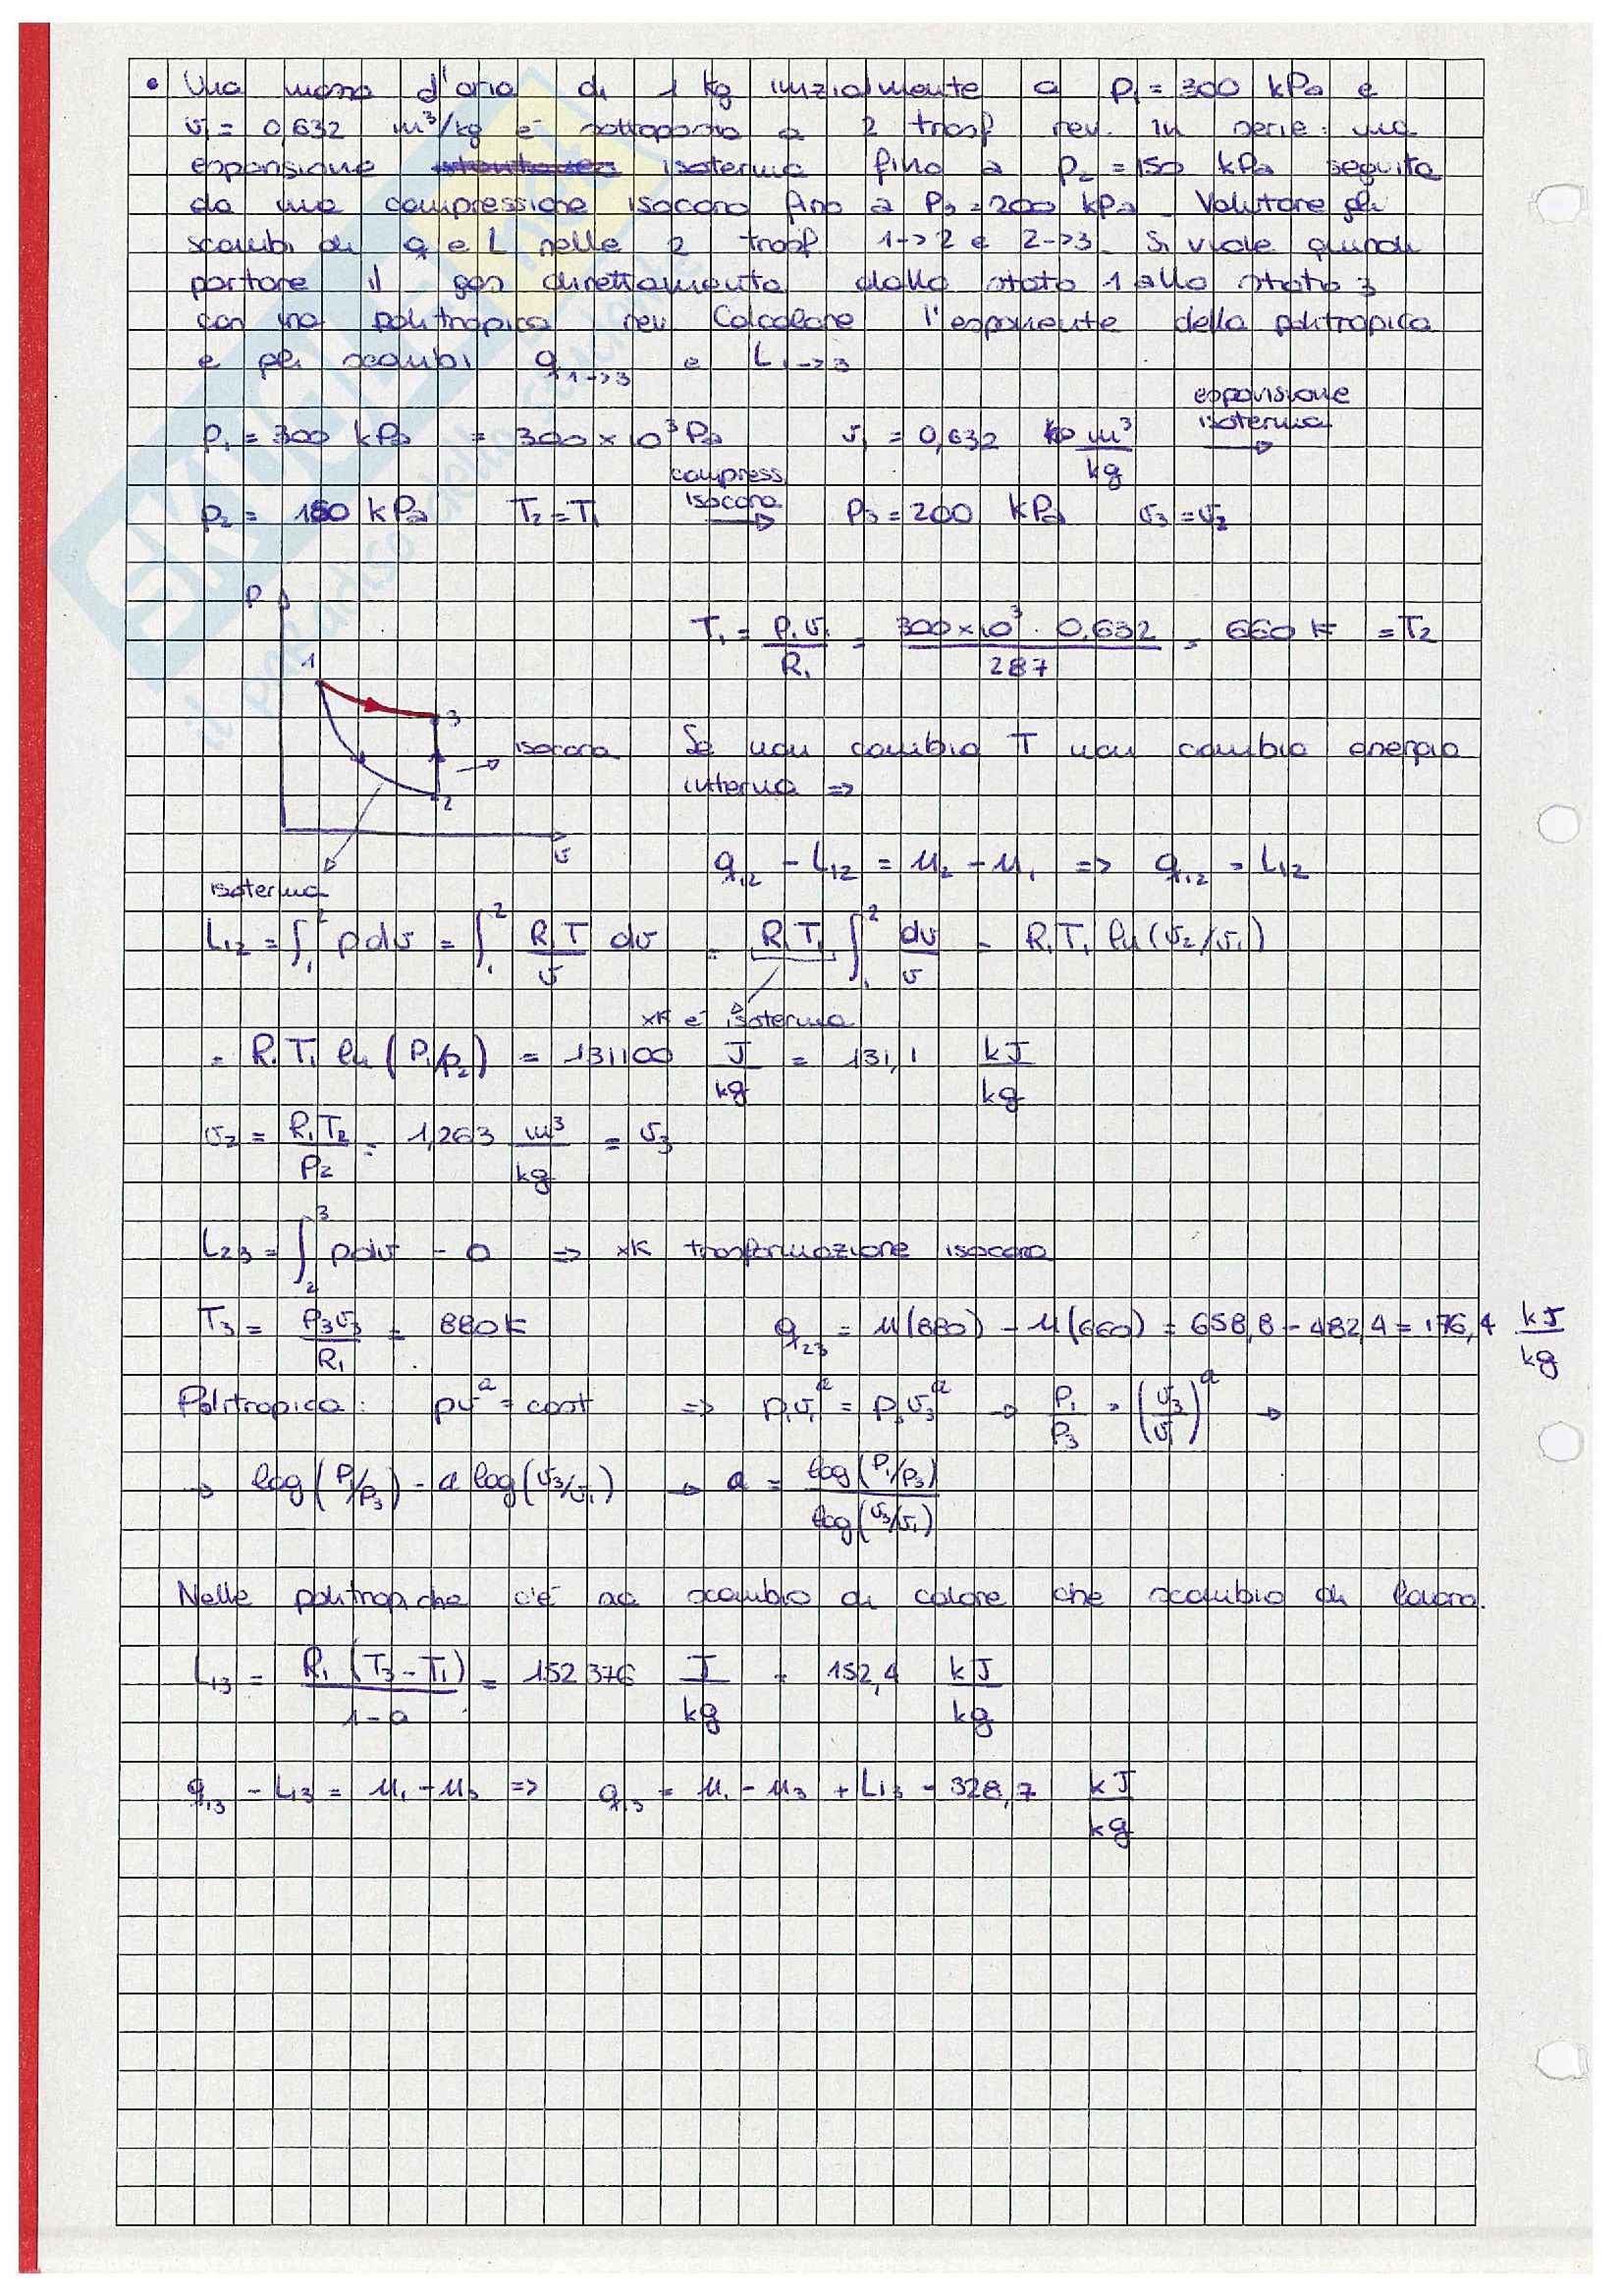 • Una massa d'aria di 1 kg inizialmente a p₁ = 300 kPa e
v₁ = 0,632 m³/kg è sottoposta a 2 trasf rev. in serie: una
espansione isoterma fino a p₂ = 150 kPa seguita
da una compressione isocora fino a P₃ = 200 kPa. Valutare gli
scambi di q e L nelle 2 trasf. 1->2 e 2->3. Si vuole quindi
portare il gas direttamente dallo stato 1 allo stato 3
con una politropica rev. Calcolare l'esponente della politropica
e gli scambi q₁->₃ e L₁->₃
espansione
p₁ = 300 kPa = 300×10³ Pa v₁ = 0,632 m³/kg isoterma →
compress
p₂ = 150 kPa T₂ = T₁ isocora → P₃ = 200 kPa v₃ = v₂
P
T₁ = P₁v₁/R₁ = 300×10³ · 0,632/287 = 660 K = T₂
1
3
isocora Se non cambia T non cambia energia
interna =>
2
v
q₁₂ - L₁₂ = u₂ - u₁ => q₁₂ = L₁₂
isoterma
L₁₂ = ∫₁² p dv = ∫₁² R₁T/v dv = R₁T₁ ∫₁² dv/v = R₁T₁ ln(v₂/v₁)
xK è isoterma
= R₁T₁ ln(P₁/p₂) = 131100 J/kg = 131,1 kJ/kg
v₂ = R₁T₂/P₂ = 1,263 m³/kg = v₃
L₂₃ = ∫₂³ pdv = 0 => xK trasformazione isocora
T₃ = P₃v₃/R₁ = 880 K q₂₃ = u(880) - u(660) = 658,8 - 482,4 = 176,4 kJ/kg
Politropica: pvᵃ = cost => p₁v₁ᵃ = p₃v₃ᵃ → P₁/P₃ = (v₃/v₁)ᵃ →
→ log(P₁/P₃) = a log(v₃/v₁) → a = log(P₁/P₃)/log(v₃/v₁)
Nelle politropiche c'è sia scambio di calore che scambio di lavoro.
L₁₃ = R₁(T₃-T₁)/1-a = 152376 J/kg = 152,4 kJ/kg
q₁₃ - L₁₃ = u₁ - u₃ => q₁₃ = u₁ - u₃ + L₁₃ = 328,7 kJ/kg